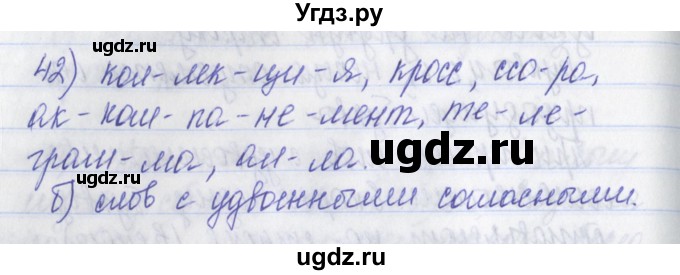 Угдз.ру
ugdz.ru
ugdz.ru
42) кол-лек-ци-я, кросс, ссо-ра,
ак-ком-па-не-мент, те-ле-
ugdz.ru
ugdz.ru
грам-ма, ал-ла.
б) слов с удвоенными согласными.
ugdz.ru